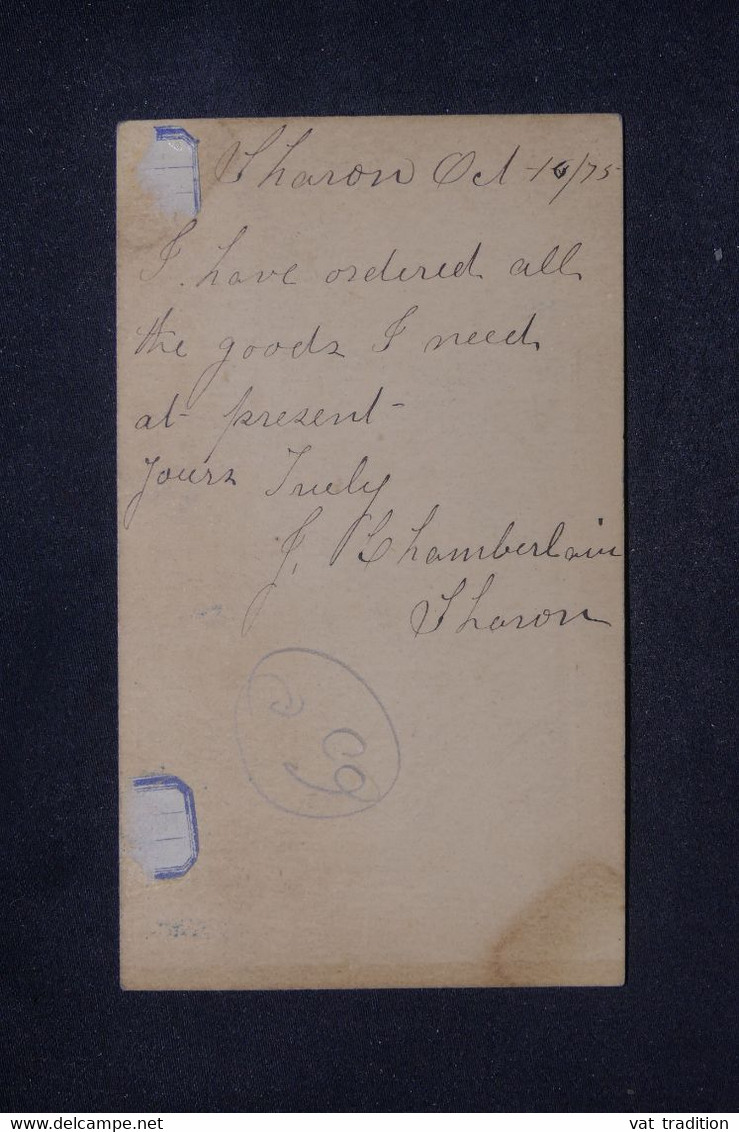 Sharon Oct 10/75
I have ordered all
the goods I need
at present
Yours Truly
J. Chamberlain
Sharon
www.delcampe.net
vat tradition